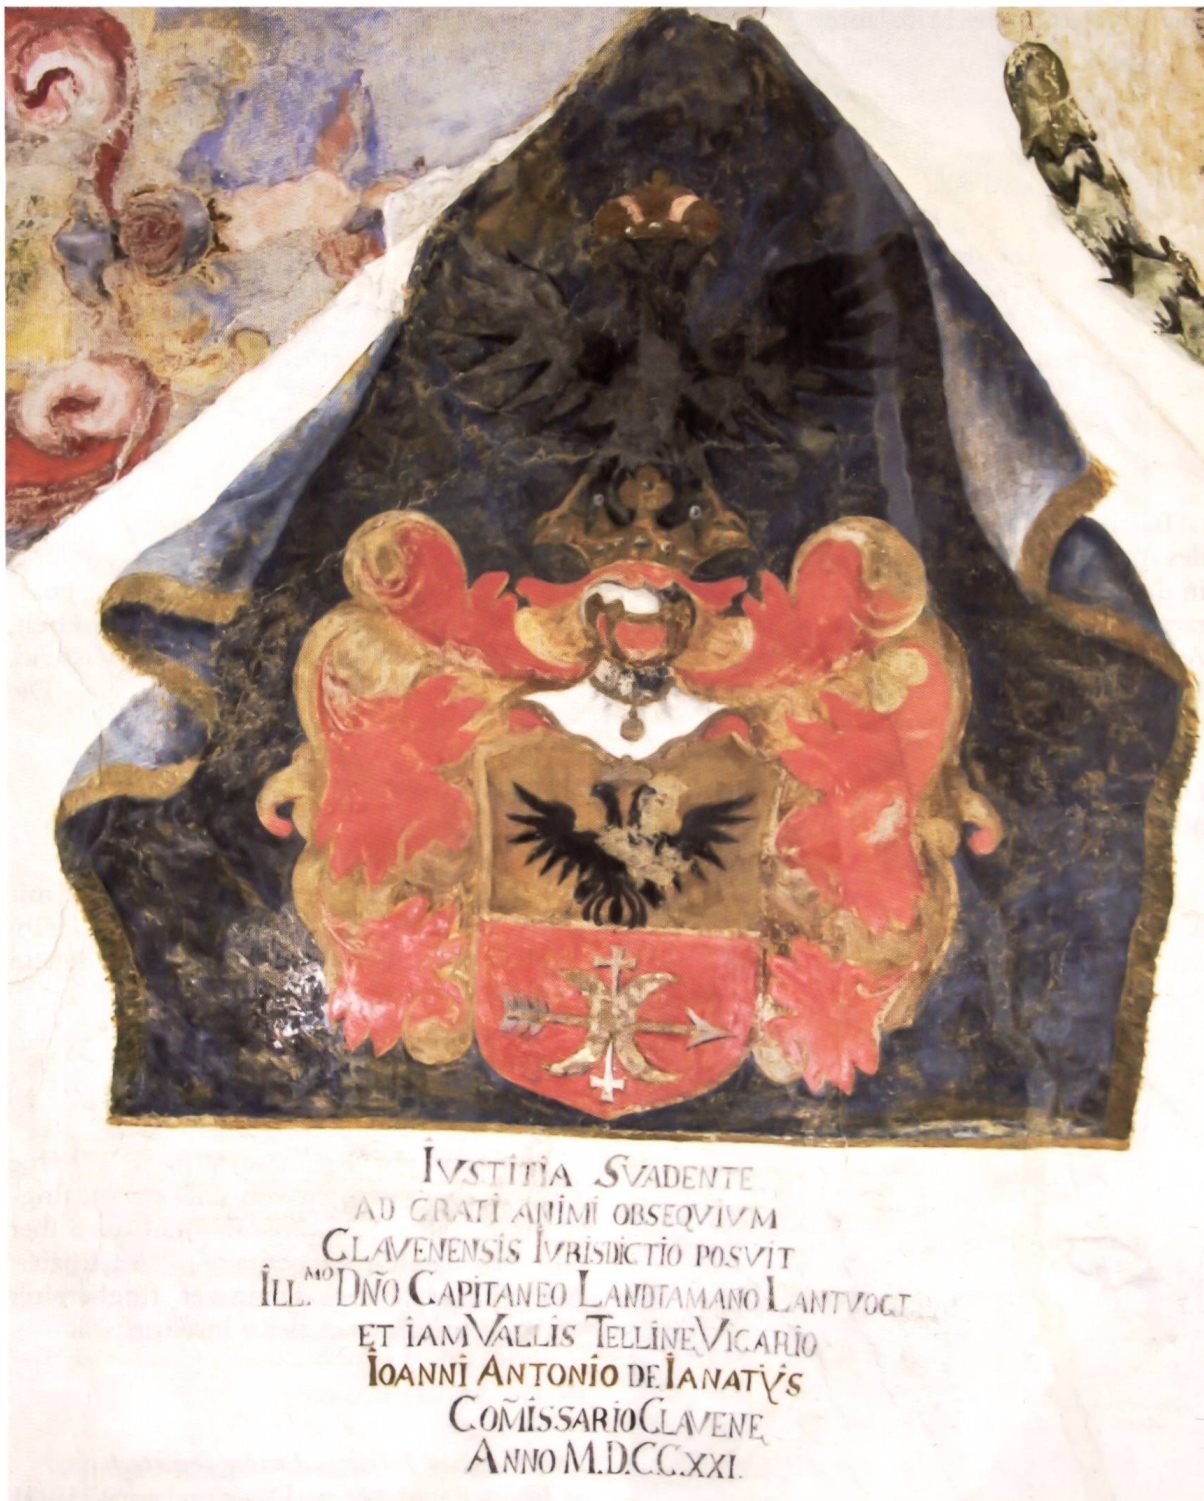 IVSTITIA SVADENTE
AD GRATI ANIMI OBSEQVIVM
CLAVENENSIS IVRISDICTIO POSVIT
ILL.MO DÑO CAPITANEO LANDTAMANO LANTVOGT.
ET IAM VALLIS TELLINE VICARIO
IOANNI ANTONIO DE IANATVS
COM̃ISSARIO CLAVENE
ANNO M.D.C.C.XXI.